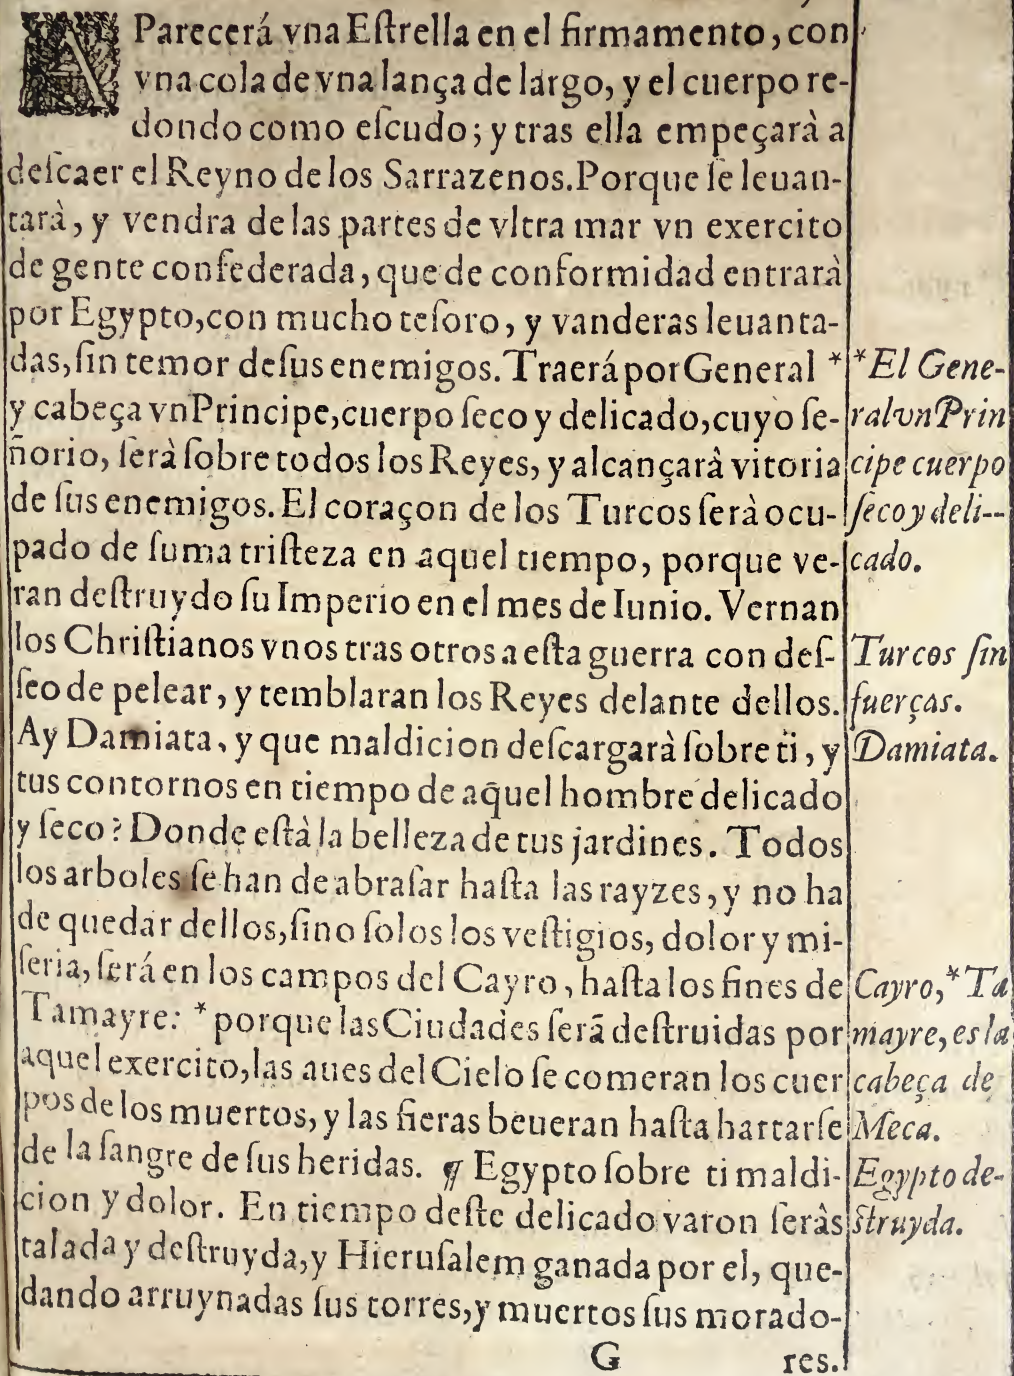 AParecerá vna Eſtrella en el firmamento, con
vna cola de vna lança de largo, y el cuerpo re-
dondo como eſcudo; y tras ella empeçarà a
deſcaer el Reyno de los Sarrazenos. Porque ſe leuan-
tarà, y vendra de las partes de vltra mar vn exercito
de gente confederada, que de conformidad entrarà
por Egypto, con mucho teſoro, y vanderas leuanta-
das, ſin temor de ſus enemigos. Traerá por General *
y cabeça vn Principe, cuerpo ſeco y delicado, cuyo ſe-
ñorio, ſerà ſobre todos los Reyes, y alcançarà vitoria
de ſus enemigos. El coraçon de los Turcos ſerà ocu-
pado de ſuma triſteza en aquel tiempo, porque ve-
ran deſtruydo ſu Imperio en el mes de Iunio. Vernan
los Chriſtianos vnos tras otros a eſta guerra con deſ-
ſeo de pelear, y temblaran los Reyes delante dellos.
Ay Damiata, y que maldicion deſcargarà ſobre ti, y
tus contornos en tiempo de aquel hombre delicado
y ſeco? Donde eſtà la belleza de tus jardines. Todos
los arboles ſe han de abraſar haſta las rayzes, y no ha
de quedar dellos, ſino ſolos los veſtigios, dolor y mi-
ſeria, ſerá en los campos del Cayro, haſta los fines de
Tamayre: * porque las Ciudades ſerã deſtruidas por
aquel exercito, las aues del Cielo ſe comeran los cuer
pos de los muertos, y las fieras beueran haſta hartarſe
de la ſangre de ſus heridas. ¶ Egypto ſobre ti maldi-
cion y dolor. En tiempo deſte delicado varon ſeràs
talada y deſtruyda, y Hieruſalem ganada por el, que-
dando arruynadas ſus torres, y muertos ſus morado-
G res.
*El Gene-
ral vn Prin
cipe cuerpo
ſeco y deli--
cado.
Turcos ſin
fuerças.
Damiata.
Cayro, *Ta
mayre, es la
cabeça de
Meca.
Egypto de-
ſtruyda.